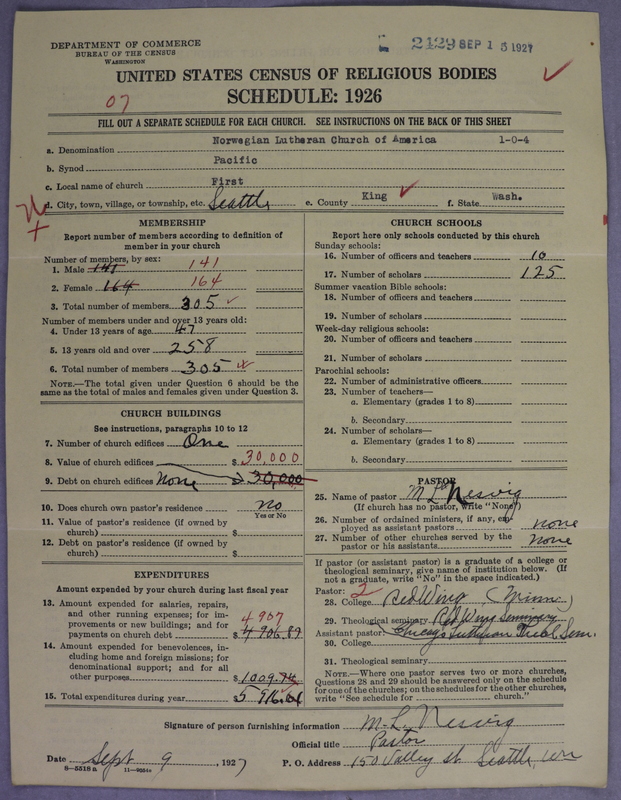 DEPARTMENT OF COMMERCE
BUREAU OF THE CENSUS
WASHINGTON
2429 SEP 15 1927
UNITED STATES CENSUS OF RELIGIOUS BODIES
SCHEDULE: 1926
07
FILL OUT A SEPARATE SCHEDULE FOR EACH CHURCH. SEE INSTRUCTIONS ON THE BACK OF THIS SHEET
a. Denomination Norwegian Lutheran Church of America 1-0-4
b. Synod Pacific
c. Local name of church First
d. City, town, village, or township, etc. Seattle e. County King f. State Wash.
MEMBERSHIP
Report number of members according to definition of
member in your church
Number of members, by sex:
1. Male 141 141
2. Female 164 164
3. Total number of members 305
Number of members under and over 13 years old:
4. Under 13 years of age 47
5. 13 years old and over 258
6. Total number of members 305
NOTE.—The total given under Question 6 should be the
same as the total of males and females given under Question 3.
CHURCH BUILDINGS
See instructions, paragraphs 10 to 12
7. Number of church edifices One
8. Value of church edifices $ 30,000
9. Debt on church edifices None $ 30,000
10. Does church own pastor's residence No
Yes or No
11. Value of pastor's residence (if owned by
church) $
12. Debt on pastor's residence (if owned by
church) $
EXPENDITURES
Amount expended by your church during last fiscal year
13. Amount expended for salaries, repairs,
and other running expenses; for im-
provements or new buildings; and for
payments on church debt $ 4906.87
4907
14. Amount expended for benevolences, in-
cluding home and foreign missions; for
denominational support; and for all
other purposes 1009.74
15. Total expenditures during year $ 5916.61
CHURCH SCHOOLS
Report here only schools conducted by this church
Sunday schools:
16. Number of officers and teachers 10
17. Number of scholars 125
Summer vacation Bible schools:
18. Number of officers and teachers
19. Number of scholars
Week-day religious schools:
20. Number of officers and teachers
21. Number of scholars
Parochial schools:
22. Number of administrative officers
23. Number of teachers—
a. Elementary (grades 1 to 8)
b. Secondary
24. Number of scholars—
a. Elementary (grades 1 to 8)
b. Secondary
PASTOR
25. Name of pastor M. L. Nesvig
(If church has no pastor, write "None")
26. Number of ordained ministers, if any, em-
ployed as assistant pastors none
27. Number of other churches served by the
pastor or his assistants none
If pastor (or assistant pastor) is a graduate of a college or
theological seminary, give name of institution below. (If
not a graduate, write "No" in the space indicated.)
Pastor: 2
28. College Red Wing (Minn)
29. Theological seminary Red Wing Seminary
Assistant pastor: Chicago Lutheran Theol Sem.
30. College
31. Theological seminary
NOTE.—Where one pastor serves two or more churches,
Questions 28 and 29 should be answered only on the schedule
for one of the churches; on the schedules for the other churches,
write "See schedule for church."
Signature of person furnishing information M. L. Nesvig
Official title Pastor
Date Sept 9, 1927 P. O. Address 150 Valley St. Seattle, Wn
8—5518 a